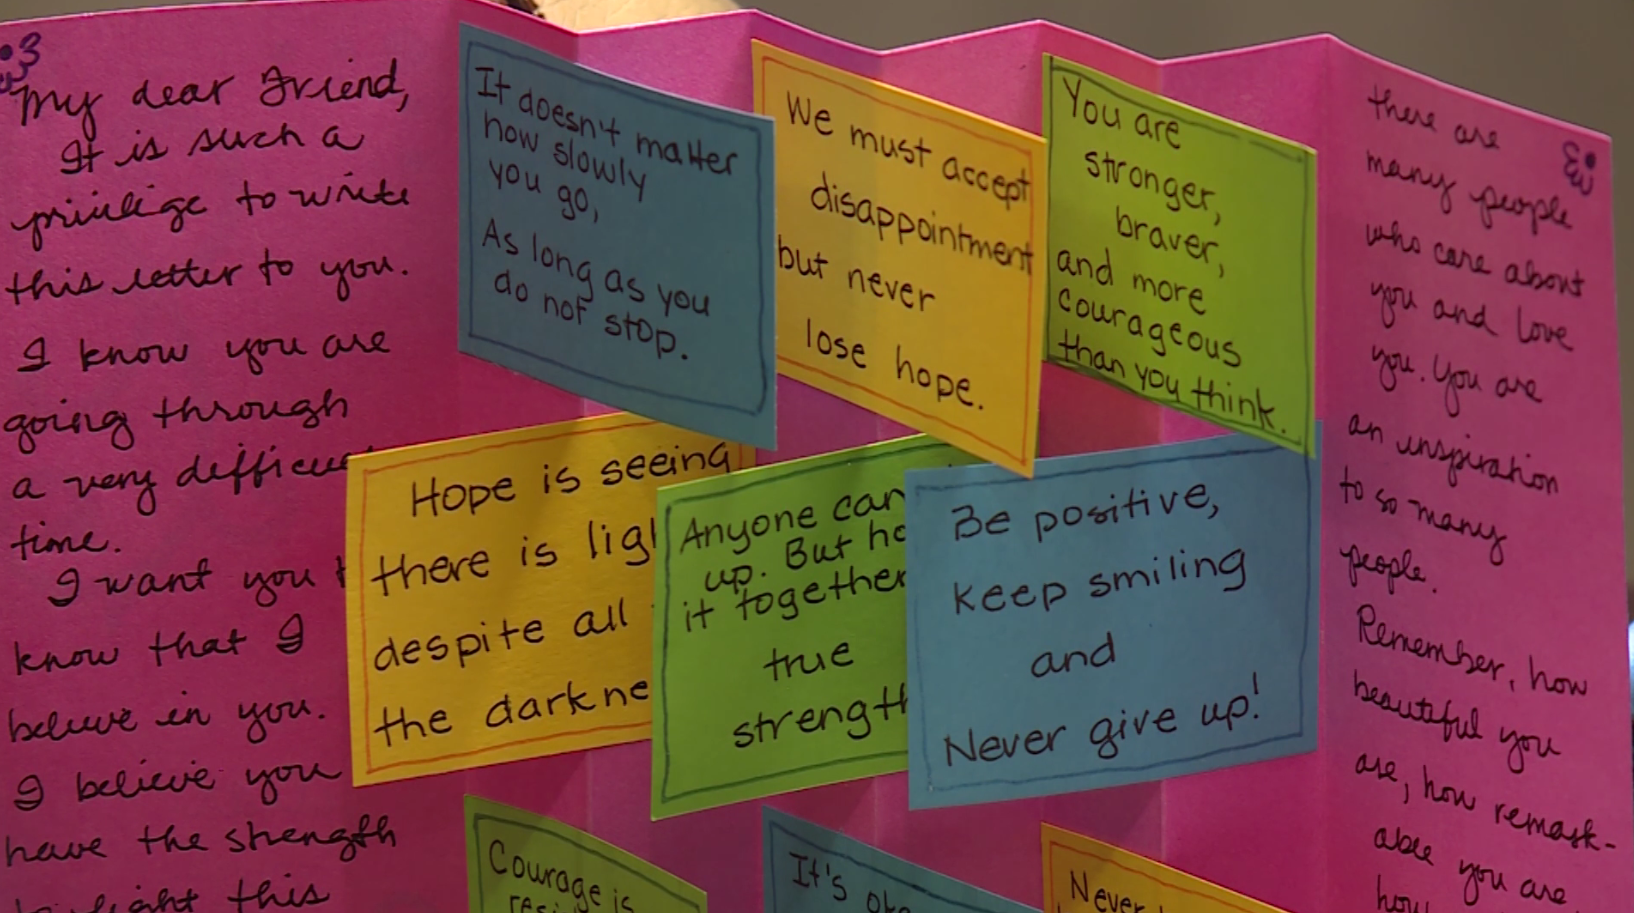 My dear Friend,
It is such a
privilige to write
this letter to you.
I know you are
going through
a very
time.
I want you
know that I
believe in you.
I believe you
have the strength
this
It doesn't matter
how slowly
you go,
As long as you
do not stop.
We must accept
disappointment
but never
lose hope.
You are
stronger,
braver,
and more
courageous
than you think.
Hope is seeing
there is
despite all
the
Anyone can
up. But
it together
true
Be positive,
keep smiling
and
Never give up!
Courage is
It's
Never
there are
many people
who care about
you and love
you. You are
an inspiration
to so many
people.
Remember, how
beautiful you
are, how remark-
able you are,
how